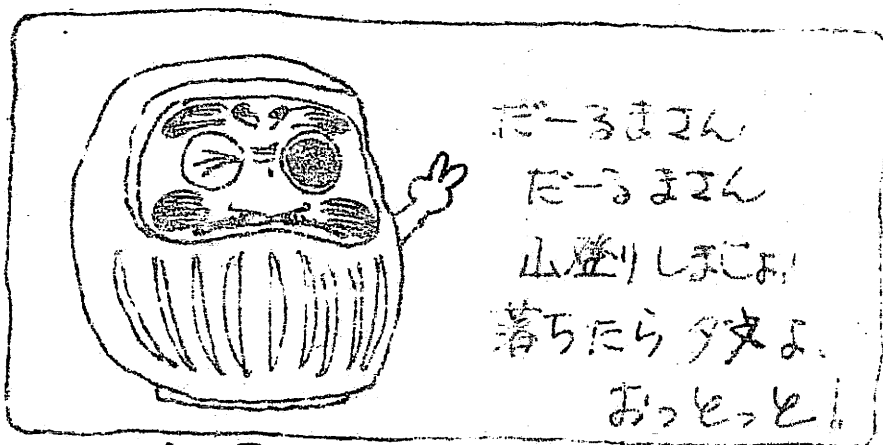 だーるまさん
だーるまさん
山登りしましょ!
落ちたらダメよ、
おっとっと!